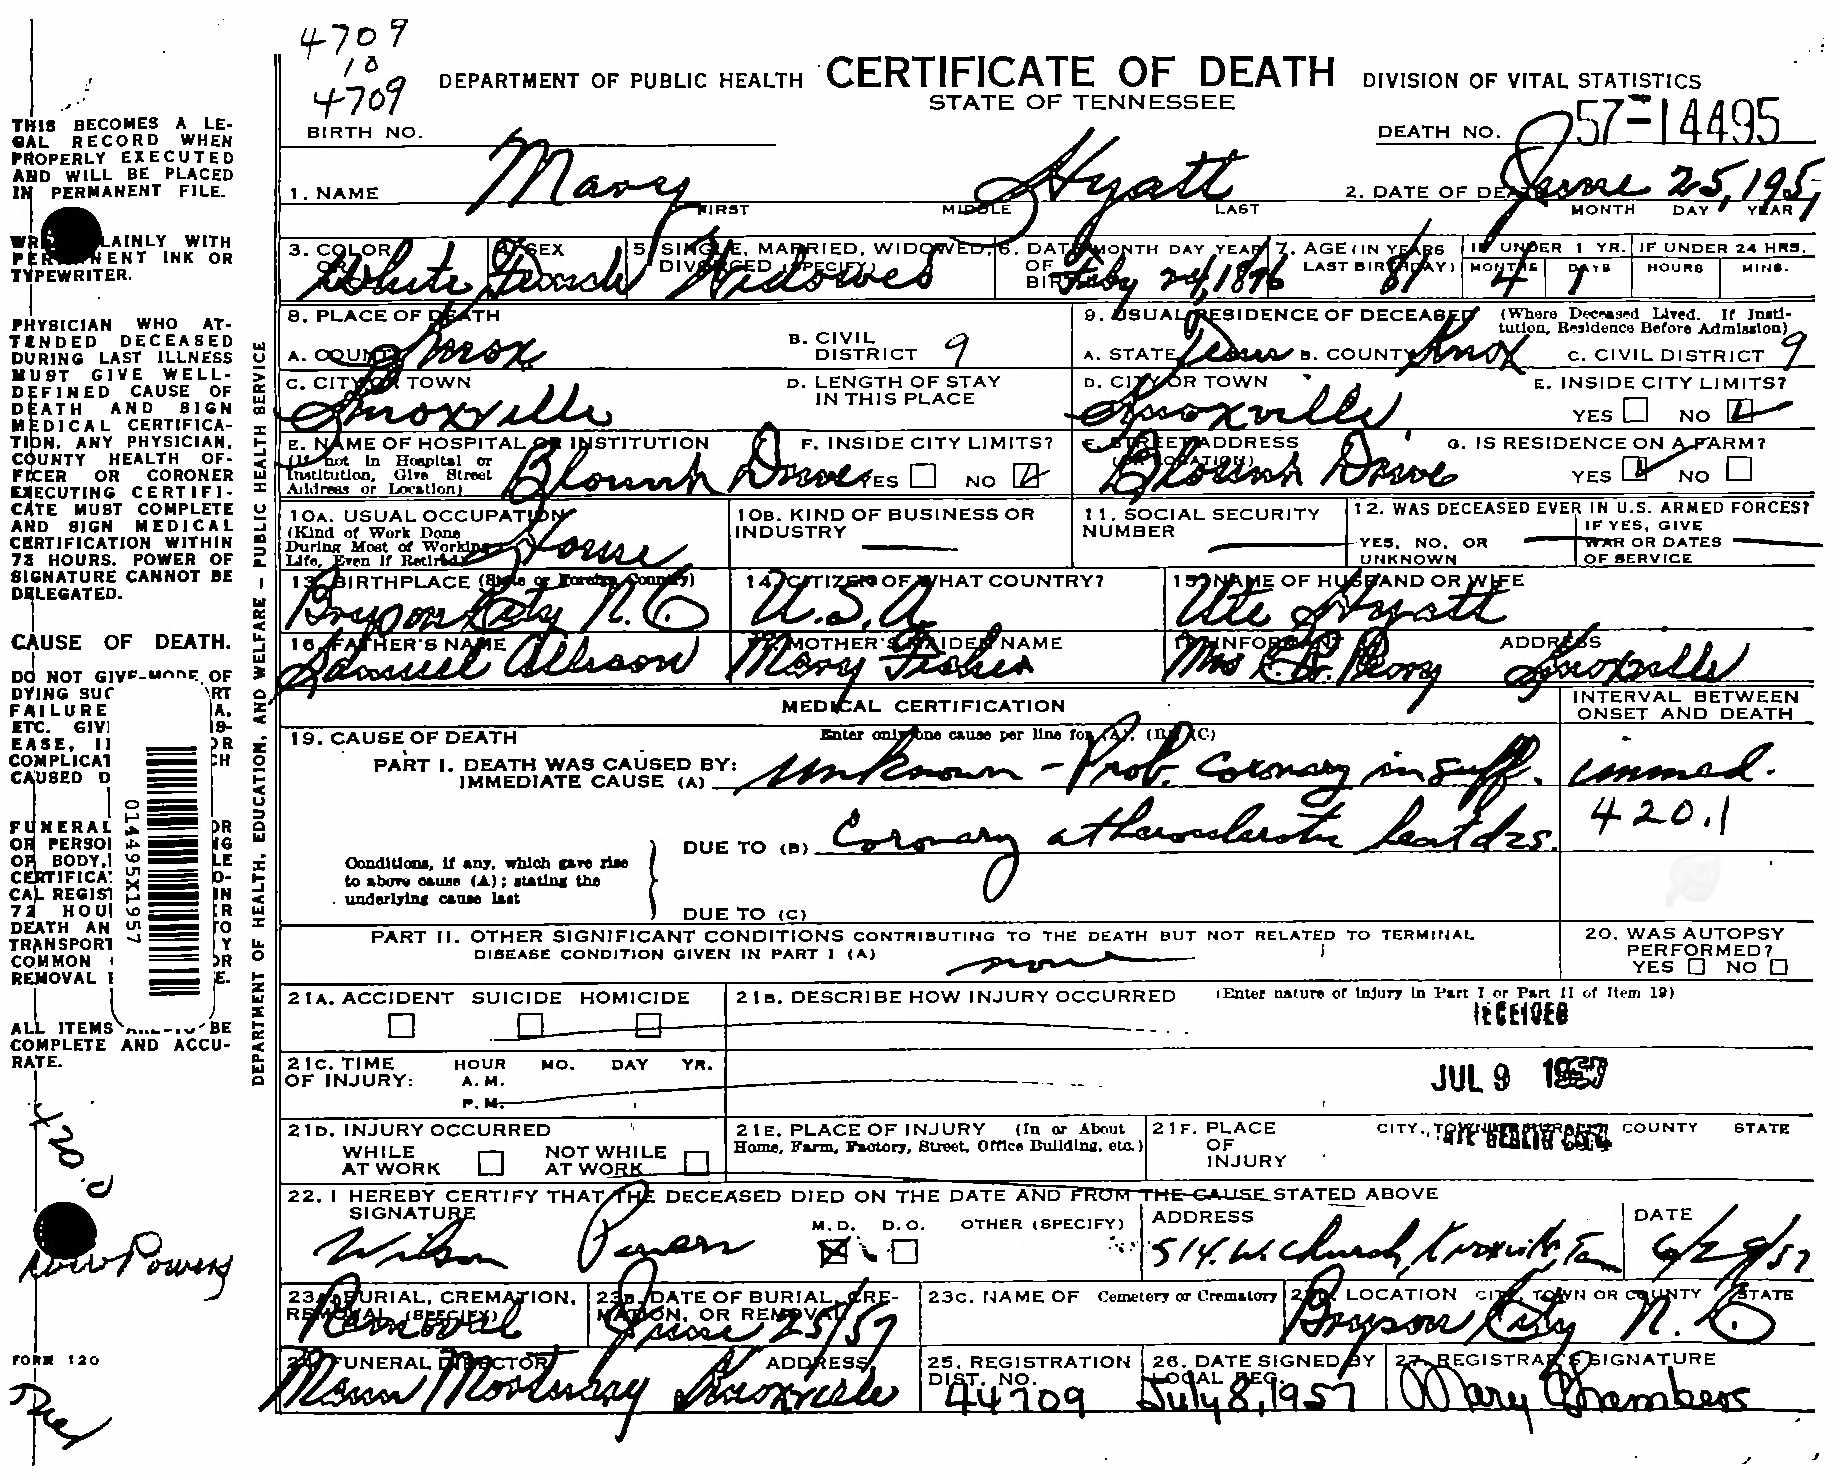 4709
10
4709
DEPARTMENT OF PUBLIC HEALTH CERTIFICATE OF DEATH DIVISION OF VITAL STATISTICS
STATE OF TENNESSEE
BIRTH NO. DEATH NO. 57-14495
1. NAME Mary Hyatt 2. DATE OF DEATH June 25, 1957
FIRST MIDDLE LAST MONTH DAY YEAR
3. COLOR OR White 4. SEX Female 5. SINGLE, MARRIED, WIDOWED, DIVORCED (SPECIFY) Widowed 6. DATE OF BIRTH MONTH DAY YEAR Feby 24, 1876 7. AGE (IN YEARS LAST BIRTHDAY) 81 IF UNDER 1 YR. MONTHS 4 DAYS 1 IF UNDER 24 HRS. HOURS MINS.
8. PLACE OF DEATH
A. COUNTY Knox B. CIVIL DISTRICT 9
C. CITY OR TOWN Knoxville D. LENGTH OF STAY IN THIS PLACE
E. NAME OF HOSPITAL OR INSTITUTION (If not in Hospital or Institution, Give Street Address or Location) Blount Drive F. INSIDE CITY LIMITS? YES NO
9. USUAL RESIDENCE OF DECEASED (Where Deceased Lived. If Institution, Residence Before Admission)
A. STATE Tenn B. COUNTY Knox C. CIVIL DISTRICT 9
D. CITY OR TOWN Knoxville E. INSIDE CITY LIMITS? YES NO
F. STREET ADDRESS (OR LOCATION) Blount Drive G. IS RESIDENCE ON A FARM? YES NO
10A. USUAL OCCUPATION (Kind of Work Done During Most of Working Life, Even If Retired) House
10B. KIND OF BUSINESS OR INDUSTRY
11. SOCIAL SECURITY NUMBER
12. WAS DECEASED EVER IN U.S. ARMED FORCES? YES, NO, OR UNKNOWN IF YES, GIVE WAR OR DATES OF SERVICE
13. BIRTHPLACE (State or Foreign Country) Bryson City N.C. 14. CITIZEN OF WHAT COUNTRY? U.S.A. 15. NAME OF HUSBAND OR WIFE Ute Hyatt
16. FATHER'S NAME Samuel Allison 17. MOTHER'S MAIDEN NAME Mary Fisher 18. INFORMANT Mrs Perry ADDRESS Knoxville
MEDICAL CERTIFICATION INTERVAL BETWEEN ONSET AND DEATH
19. CAUSE OF DEATH Enter only one cause per line for (A), (B), (C)
PART I. DEATH WAS CAUSED BY:
IMMEDIATE CAUSE (A) unknown - Prob. coronary insuff. immed.
420.1
DUE TO (B) Coronary atherosclerotic heart dzs.
Conditions, if any, which gave rise
to above cause (A); stating the
underlying cause last
DUE TO (C)
PART II. OTHER SIGNIFICANT CONDITIONS CONTRIBUTING TO THE DEATH BUT NOT RELATED TO TERMINAL
DISEASE CONDITION GIVEN IN PART I (A) none
20. WAS AUTOPSY PERFORMED? YES NO
21A. ACCIDENT SUICIDE HOMICIDE 21B. DESCRIBE HOW INJURY OCCURRED (Enter nature of injury in Part I or Part II of Item 19)
RECEIVED
21C. TIME OF INJURY: HOUR MO. DAY YR. A.M. P.M.
JUL 9 1957
21D. INJURY OCCURRED WHILE AT WORK NOT WHILE AT WORK
21E. PLACE OF INJURY (In or About Home, Farm, Factory, Street, Office Building, etc.)
21F. PLACE OF INJURY CITY, COUNTY STATE
22. I HEREBY CERTIFY THAT THE DECEASED DIED ON THE DATE AND FROM THE CAUSE STATED ABOVE
SIGNATURE Wilson Powers M.D. D.O. OTHER (SPECIFY) ADDRESS 514 W. Church, Knoxville, DATE 6/29/57
23A. BURIAL, CREMATION, REMOVAL (SPECIFY) Removal 23B. DATE OF BURIAL, CREMATION, OR REMOVAL June 25/57 23C. NAME OF Cemetery or Crematory 23D. LOCATION CITY, TOWN OR COUNTY STATE Bryson City N.C.
24. FUNERAL DIRECTOR ADDRESS Mann Mortuary Knoxville
25. REGISTRATION DIST. NO. 44709
26. DATE SIGNED BY LOCAL REG. July 8, 1957
27. REGISTRAR'S SIGNATURE Mary Chambers
THIS BECOMES A LE-
GAL RECORD WHEN
PROPERLY EXECUTED
AND WILL BE PLACED
IN PERMANENT FILE.
WRITE PLAINLY WITH
PERMANENT INK OR
TYPEWRITER.
PHYSICIAN WHO AT-
TENDED DECEASED
DURING LAST ILLNESS
MUST GIVE WELL-
DEFINED CAUSE OF
DEATH AND SIGN
MEDICAL CERTIFICA-
TION. ANY PHYSICIAN,
COUNTY HEALTH OF-
FICER OR CORONER
EXECUTING CERTIFI-
CATE MUST COMPLETE
AND SIGN MEDICAL
CERTIFICATION WITHIN
72 HOURS. POWER OF
SIGNATURE CANNOT BE
DELEGATED.
CAUSE OF DEATH.
DO NOT GIVE MODE OF
DYING
FAILURE
ETC.
EASE,
CAUSED
FUNERAL
OR
OF BODY,
72
DEATH
TRANSPORT
COMMON
REMOVAL
ALL ITEMS ARE TO BE
COMPLETE AND ACCU-
RATE.
014495X1957
DEPARTMENT OF HEALTH, EDUCATION, AND WELFARE - PUBLIC HEALTH SERVICE
Powers
FORM 120